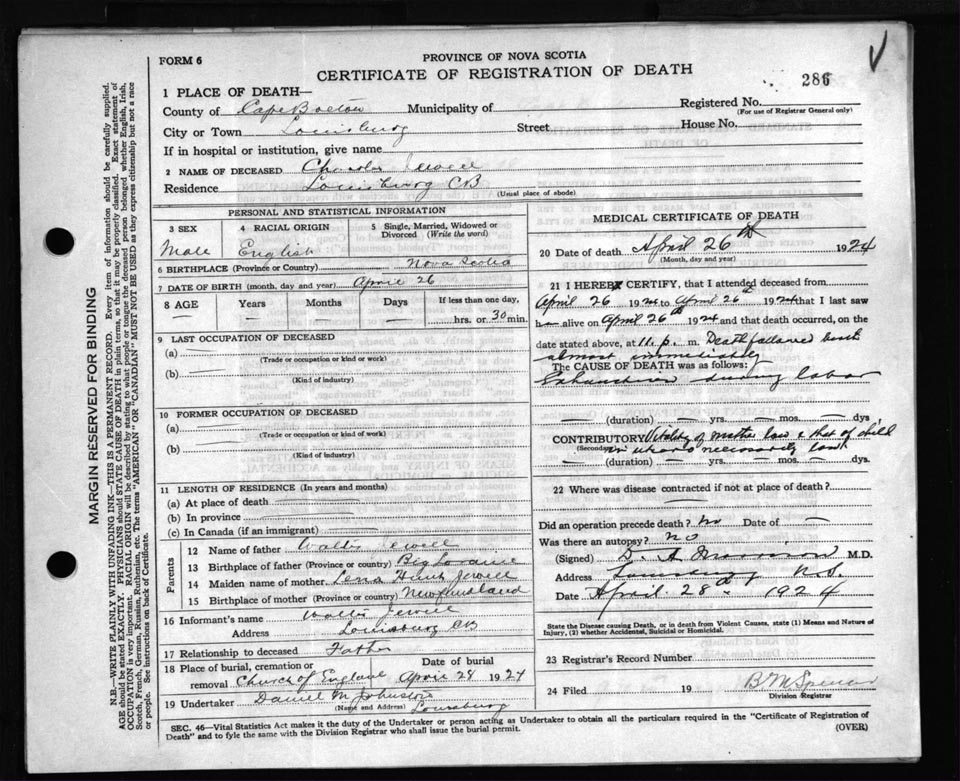 FORM 6
PROVINCE OF NOVA SCOTIA
CERTIFICATE OF REGISTRATION OF DEATH
286
1 PLACE OF DEATH—
County of Cape Breton Municipality of Registered No.
(For use of Registrar General only)
City or Town Louisburg Street House No.
If in hospital or institution, give name
2 NAME OF DECEASED Jewell
Residence Louisburg CB
(Usual place of abode)
PERSONAL AND STATISTICAL INFORMATION
3 SEX 4 RACIAL ORIGIN 5 Single, Married, Widowed or Divorced (Write the word)
Male English
6 BIRTHPLACE (Province or Country) Nova Scotia
7 DATE OF BIRTH (month, day and year) April 26
8 AGE Years Months Days If less than one day,
— — — — hrs. or 30 min.
9 LAST OCCUPATION OF DECEASED
(a) —
(Trade or occupation or kind or work)
(b) —
(Kind of industry)
10 FORMER OCCUPATION OF DECEASED
(a) —
(Trade or occupation or kind or work)
(b) —
(Kind of industry)
11 LENGTH OF RESIDENCE (In years and months)
(a) At place of death
(b) In province
(c) In Canada (if an immigrant)
Parents
12 Name of father Walter Jewell
13 Birthplace of father (Province or country) Big Loraine
14 Maiden name of mother Lena Jewell
15 Birthplace of mother (Province or country) Newfoundland
16 Informant's name Walter Jewell
Address Louisburg CB
17 Relationship to deceased Father
18 Place of burial, cremation or removal Church of England Date of burial April 28 1924
19 Undertaker Daniel M Johnston
(Name and Address) Louisburg
MEDICAL CERTIFICATE OF DEATH
20 Date of death April 26th 1924
(Month, day and year)
21 I HEREBY CERTIFY, that I attended deceased from
April 26 1924 to April 26th 1924 that I last saw
h— alive on April 26th 1924 and that death occurred, on the
date stated above, at 11. p. m. Death followed birth
almost immediately
The CAUSE OF DEATH was as follows:
Exhaustion during labor
— (duration) — yrs. — mos. — dys
CONTRIBUTORY Vitality of mother low & that of child
(Secondary) in utero necessarily low
— (duration) — yrs. — mos — dys.
22 Where was disease contracted if not at place of death?
Did an operation precede death? no Date of —
Was there an autopsy? no
(Signed) D. A. M.D.
Address Louisburg N.S.
Date April 28th 1924
State the Disease causing Death, or in death from Violent Causes, state (1) Means and Nature of
Injury, (2) whether Accidental, Suicidal or Homicidal.
23 Registrar's Record Number
24 Filed 19 B M Spencer
Division Registrar
SEC. 46—Vital Statistics Act makes it the duty of the Undertaker or person acting as Undertaker to obtain all the particulars required in the "Certificate of Registration of
Death" and to fyle the same with the Division Registrar who shall issue the burial permit. (OVER)
MARGIN RESERVED FOR BINDING
N.B.—WRITE PLAINLY WITH UNFADING INK—THIS IS A PERMANENT RECORD. Every item of information should be carefully supplied.
AGE should be stated EXACTLY. PHYSICIANS should STATE CAUSE OF DEATH in plain terms, so that it may be properly classified. Exact statement of
OCCUPATION is very important. RACIAL ORIGIN will be described by stating to what people or tongue the deceased person belonged whether English, Irish,
Scotch, French, German, Russian, Ruthenian, etc. The terms "AMERICAN" or "CANADIAN" MUST NOT BE USED as they express citizenship but not a race
or people. See instructions on back of Certificate.